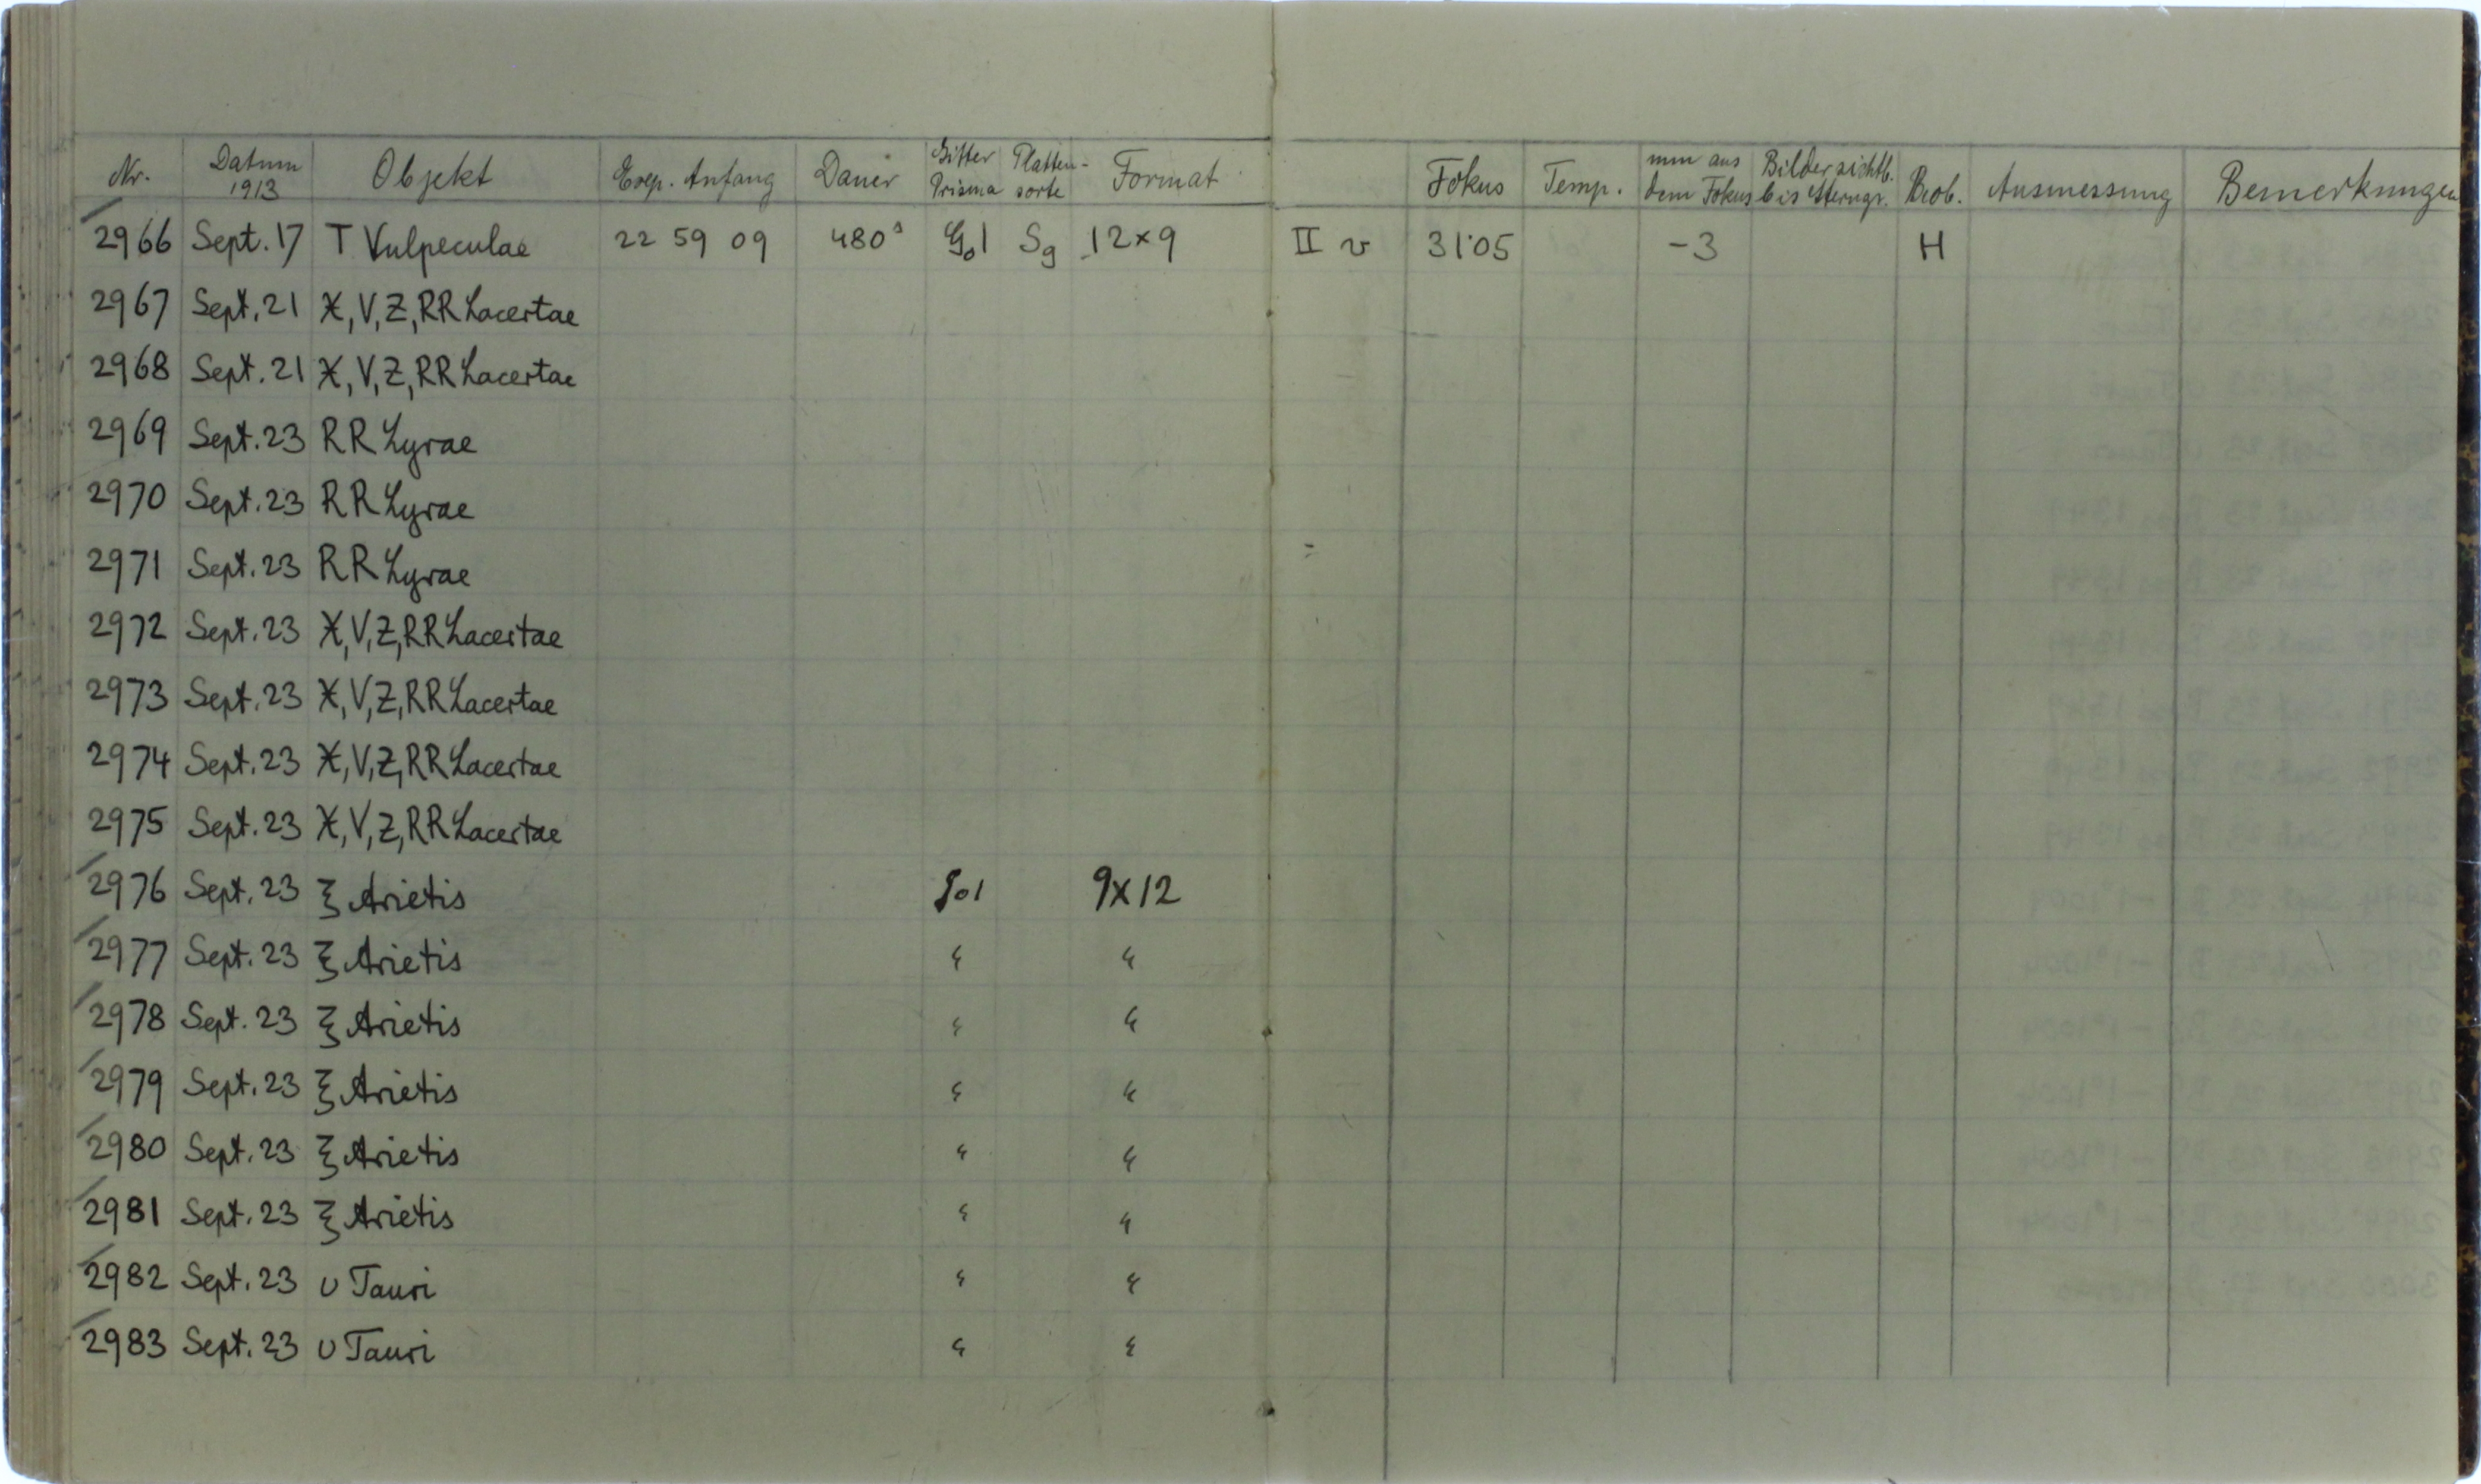 Nr. Datum 1913 Objekt Exp. Anfang Dauer Gitter Prisma Platten-sorte Format Fokus Temp. mm aus dem Fokus Bilder sichtb. bis Sterngr. Beob. Ausmessung Bemerkungen
2966 Sept. 17 T Vulpeculae 22 59 09 480s G01 Sg 12×9 II v 31.05 -3 H
2967 Sept. 21 X, V, Z, RR Lacertae
2968 Sept. 21 X, V, Z, RR Lacertae
2969 Sept. 23 RR Lyrae
2970 Sept. 23 RR Lyrae
2971 Sept. 23 RR Lyrae
2972 Sept. 23 X, V, Z, RR Lacertae
2973 Sept. 23 X, V, Z, RR Lacertae
2974 Sept. 23 X, V, Z, RR Lacertae
2975 Sept. 23 X, V, Z, RR Lacertae
2976 Sept. 23 ξ Arietis G01 9×12
2977 Sept. 23 ξ Arietis " "
2978 Sept. 23 ξ Arietis " "
2979 Sept. 23 ξ Arietis " "
2980 Sept. 23 ξ Arietis " "
2981 Sept. 23 ξ Arietis " "
2982 Sept. 23 υ Tauri " "
2983 Sept. 23 υ Tauri " "